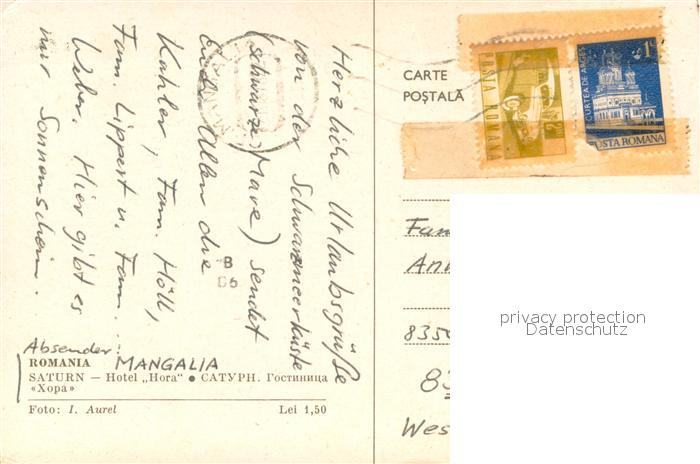 Herzliche Urlaubsgrüße
von der Schwarzmeerküste
(schwarze Mare) sendet
Allen die
Kahler, Fam. Höll,
Fam. Lippert u. Fam.
Weber. Hier gibt es
nur Sonnenschein.
B
D6
Absender:
ROMANIA MANGALIA
SATURN — Hotel „Hora" ● САТУРН. Гостиница
«Хора»
Foto: I. Aurel Lei 1,50
CARTE
POȘTALĂ
POSTA ROMANA
CURTEA DE ARGES
1L
POSTA ROMANA
Fam
An
835
8
Wes
privacy protection
Datenschutz